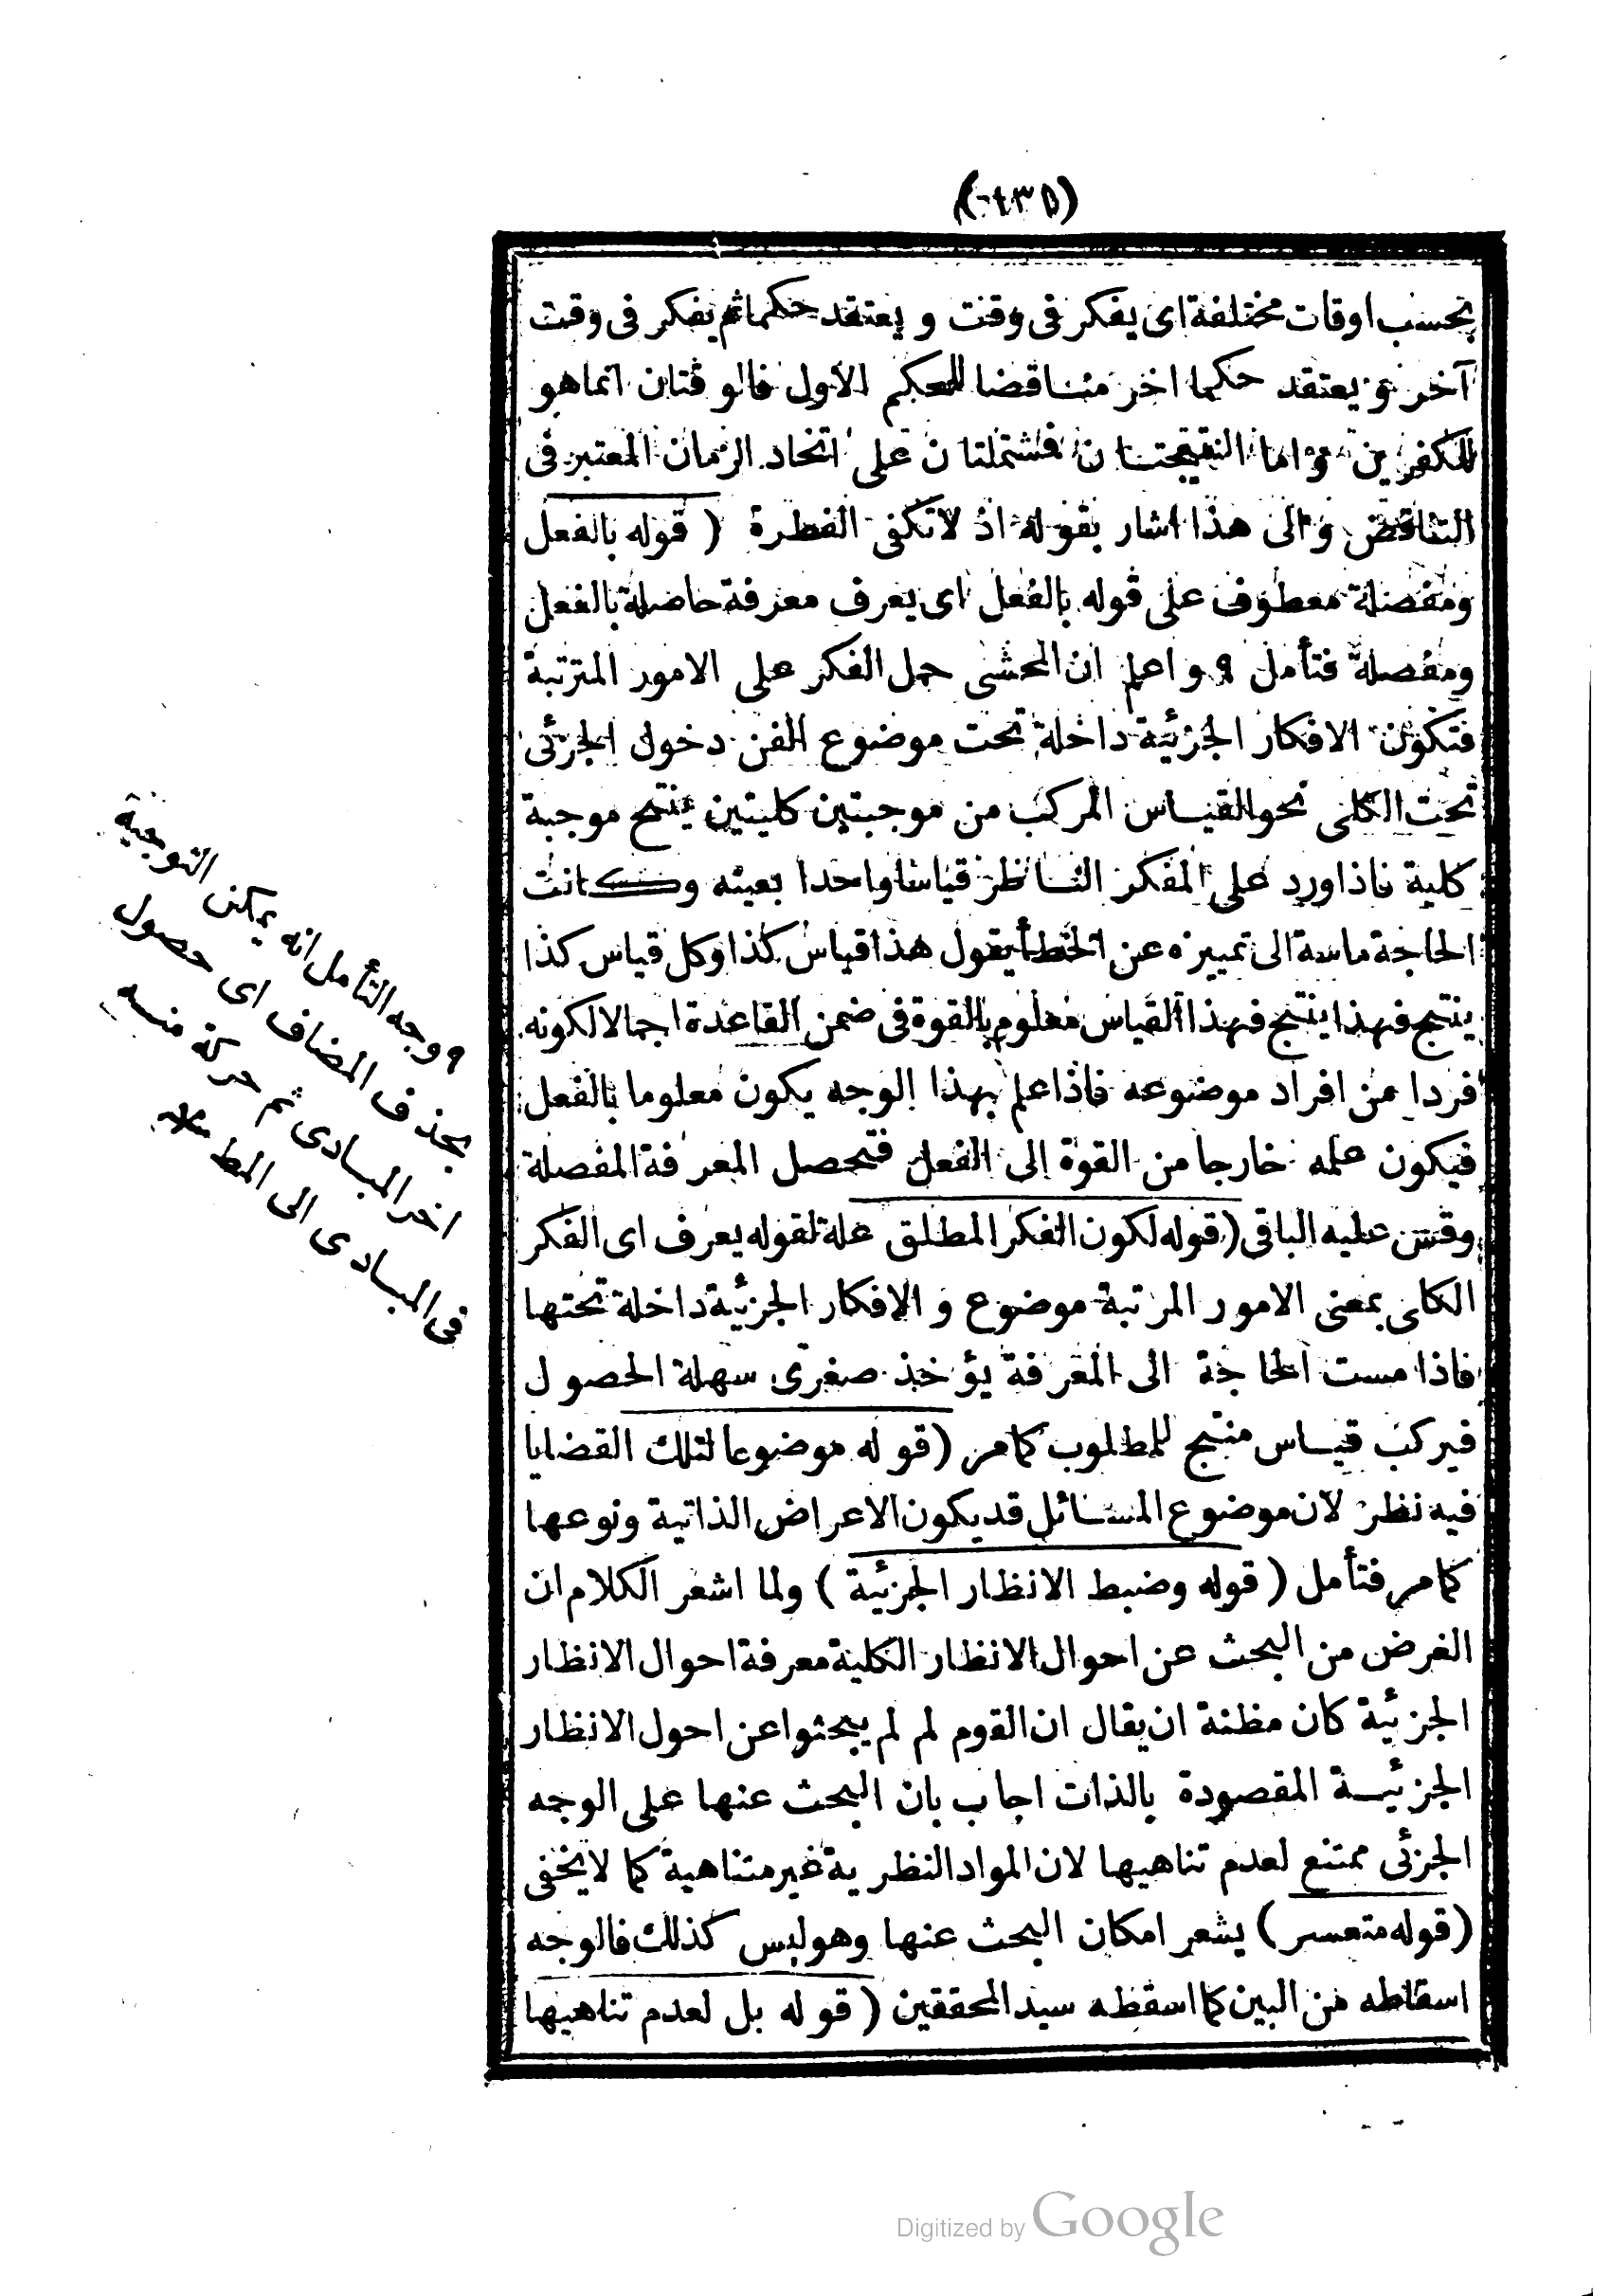 (٤٣٥)
بحسب اوقات مختلفة اى يفكر فى وقت و يعتقد حكما ثم يفكر فى وقت
آخر و يعتقد حكما اخر مناقضا للحكم الاول فالوقتان انما هو
للمفكرين و اما النقيضتان فمشتملتان على اتحاد الزمان المعتبر فى
التناقض و الى هذا اشار بقوله اذ لا تكفى الفطرة ( قوله بالفعل
ومفصلة معطوف على قوله بالفعل اى يعرف معرفة حاصلة بالفعل
ومفصلة فتأمل ٩ و اعلم ان المحشى حمل الفكر على الامور المترتبة
فتكون الافكار الجزئية داخلة تحت موضوع الفن دخول الجزئى
تحت الكلى نحو القياس المركب من موجبتين كليتين ينتج موجبة
كلية فاذا ورد على المفكر الناظر قياسا واحدا بعينه وكانت
الحاجة ماسة الى تمييزه عن الخطأ يقول هذا قياس كذا وكل قياس كذا
ينتج فهذا ينتج فهذا القياس معلوم بالقوة فى ضمن القاعدة اجمالا لكونه
فردا من افراد موضوعه فاذا علم بهذا الوجه يكون معلوما بالفعل
فيكون علمه خارجا من القوة الى الفعل فتحصل المعرفة المفصلة
وقس عليه الباقى (قوله لكون الفكر المطلق علة لقوله يعرف اى الفكر
الكلى بمعنى الامور المرتبة موضوع و الافكار الجزئية داخلة تحتها
فاذا مست الحاجة الى المعرفة يؤخذ صغرى سهلة الحصول
فيركب قياس منتج للمطلوب كما مر (قوله موضوعا لتلك القضايا
فيه نظر لان موضوع المسائل قد يكون الاعراض الذاتية ونوعها
كما مر فتأمل ( قوله وضبط الانظار الجزئية ) ولما اشعر الكلام ان
الغرض من البحث عن احوال الانظار الكلية معرفة احوال الانظار
الجزئية كان مظنة ان يقال ان القوم لم لم يبحثوا عن احول الانظار
الجزئية المقصودة بالذات اجاب بان البحث عنها على الوجه
الجزئى ممتنع لعدم تناهيها لان المواد النظرية غير متناهية كما لا يخفى
(قوله متعسر ) يشعر امكان البحث عنها وهو ليس كذلك فالوجه
اسقاطه من البين كما اسقطه سيد المحققين ( قوله بل لعدم تناهيها
٩ وجه التأمل انه يمكن التوجيه
بحذف المضاف اى حصول
اخر المبادى ثم حركة منه
فى المبادى الى المط
Digitized by Google